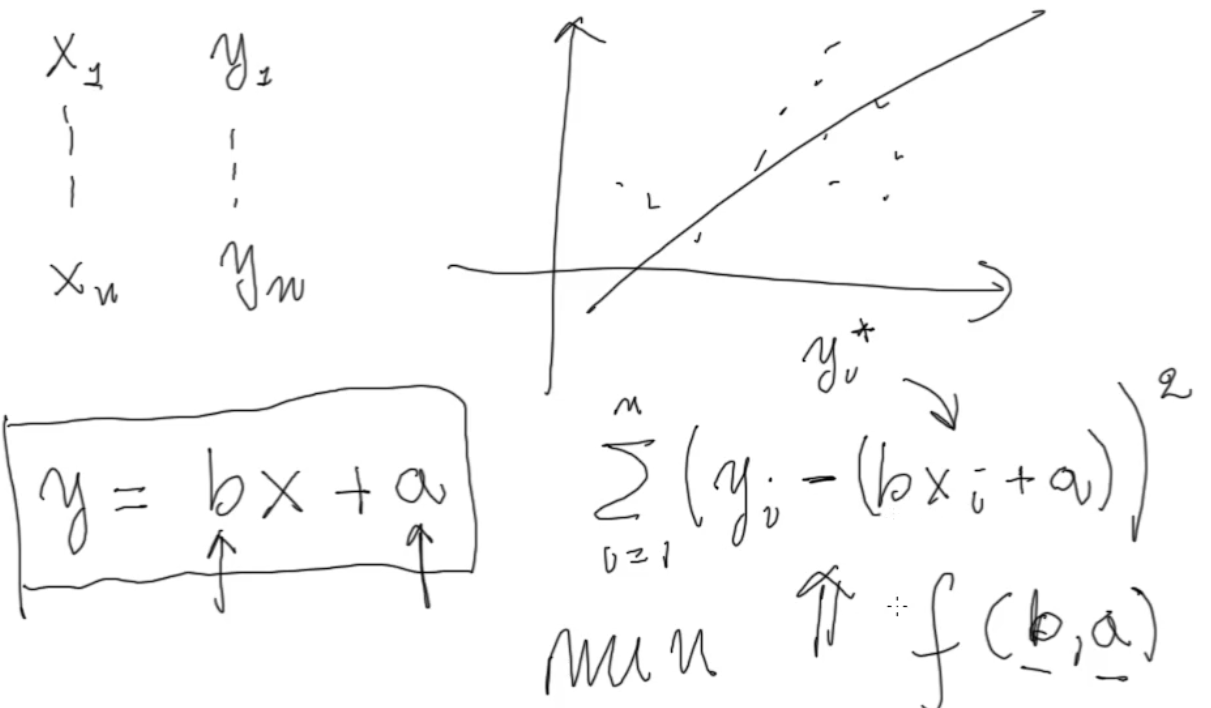 x₁ y₁
xₙ yₙ
yᵢ*
y = bx + a
∑ᵢ₌₁ⁿ (yᵢ - (bxᵢ + a))²
min ⇑ f(b, a)